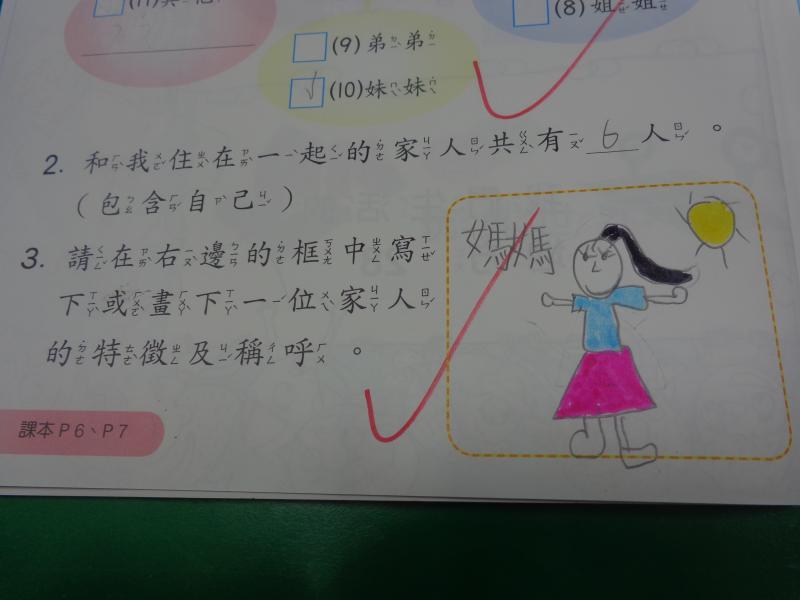 (8) 姐姐
(9) 弟弟
(10) 妹妹
2. 和我住在一起的家人共有 6 人。
(包含自己)
3. 請在右邊的框中寫
下或畫下一位家人
的特徵及稱呼。
媽媽
課本P6、P7